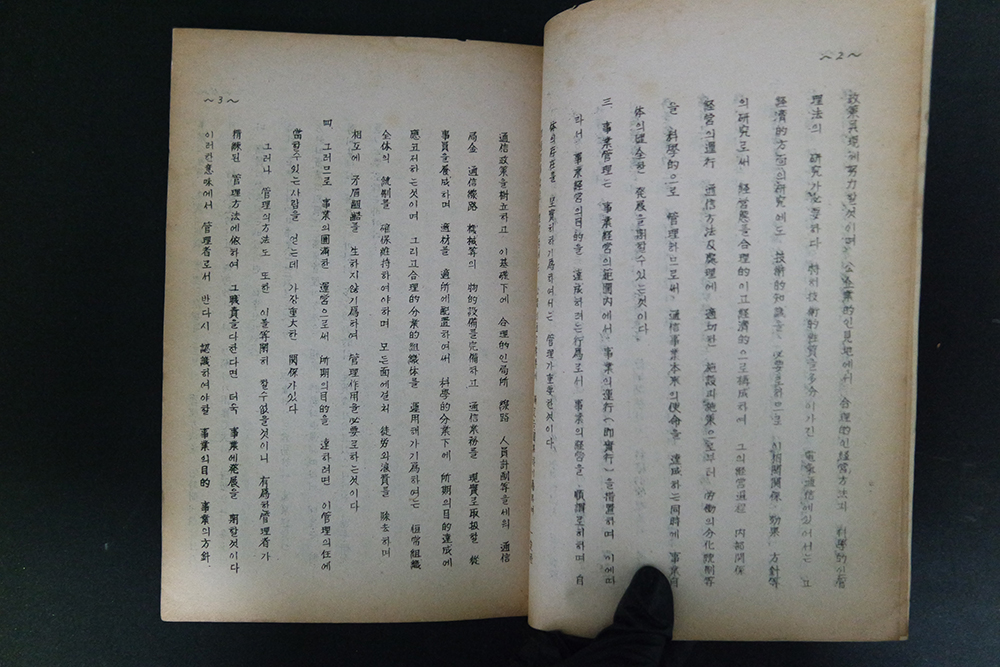 ~2~
政策具現에 努力할것이며 公企業的인見地에서 合理的인経営方法과 科學的인管
理法의 研究가必要하다 特히技術的性質을多分이가진 電氣通信에있어서는 그
経済的方面의研究에도 技術的知識을 必要로하므로 이相関関係 効果 方針等
의 研究로써 経営態를合理的이고経済的으로構成하여 그의経営過程 内部関係
経営의運行 通信方法及處理에 適切한 施設과施策으로부터 労働의分化統制等
을 科學的으로 管理하므로써 通信事業本來의使命을 達成하는同時에 事業自
体의健全한 発展을期할수있는것이다
三. 事業管理는 事業経営의範囲内에서 事業의運行(即實行)을措置하며 이에따
라서 事業経営의目的을 達成하려는行爲로서 事業의経営을 順調로히하며 自
体의存在를 爲하여서는 管理가重要한것이다.
~3~
通信政策을樹立하고 이基礎下에 合理的인局所 線路 人員計劃等을세워 通信
局舎 通信線路 機械等의 物的設備를完備하고 通信業務를 現實로取扱할 從
事員을養成하며 適材를 適所에配置하여써 科學的分業下에 所期의目的達成에
應코저하는것이며 그리고合理的分業的組織体를 運用해가기爲하여는 恒常組織
全体의 統制를 確保維持하여야하며 모든面에걸처 徒労와浪費를 除去하며
相互에 矛盾齟齬를 生하지않기爲하여 管理作用을必要로하는것이다
四. 그러므로 事業의圓滿한 運営으로써 所期의目的을 達하려면 이管理의任에
當할수있는사람을 얻는데 가장重大한 関係가있다
그러나 管理의方法도 또한 이를等閑히 할수없을것이니 有爲한管理者가
精錬된 管理方法에依하여 그職責을다한다면 더욱 事業에発展을 期할것이다
이러한意味에서 管理者로서 반다시 認識하여야할 事業의目的 事業의方針.